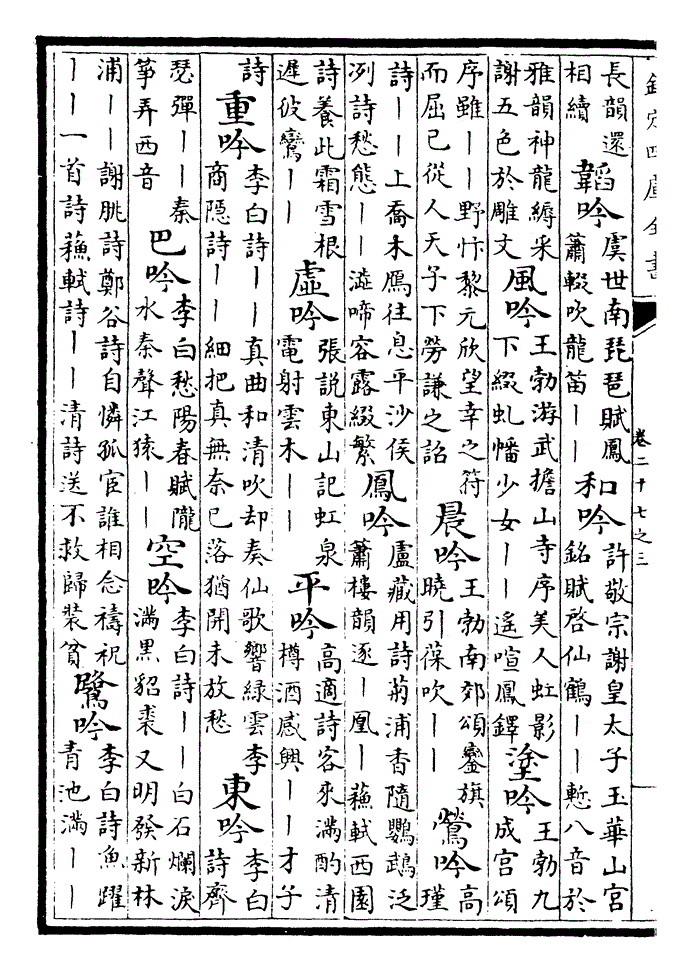 欽定四庫全書
卷二十七之三
長韻還相續韜吟虞世南琵琶賦鳳簫輟吹龍笛丨丨和吟許敬宗謝皇太子玉華山宮銘賦啓仙鶴丨丨慙八音於
雅韻神龍縟采謝五色於雕文風吟王勃游武擔山寺序美人虹影下綴虬幡少女丨丨遙喧鳳鐸塗吟王勃九成宮頌
序雖丨丨野忭黎元欣望幸之符而屈己從人天子下勞謙之詔晨吟王勃南郊頌鑾旗曉引葆吹丨丨鶯吟高瑾
詩丨丨上喬木鴈往息平沙侯冽詩愁態丨丨澁啼容露綴繁鳳吟盧藏用詩菊浦香隨鸚鵡泛簫樓韻逐丨凰丨蘇軾西園
詩養此霜雪根遲彼鸞丨丨虛吟張説東山記虹泉電射雲木丨丨平吟高適詩客來滿酌清樽酒感興丨丨才子
詩重吟李白詩丨丨真曲和清吹却奏仙歌響緑雲李商隱詩丨丨細把真無奈已落猶開未放愁東吟李白詩齊
瑟彈丨丨秦箏弄西音巴吟李白愁陽春賦隴水秦聲江猿丨丨空吟李白詩丨丨白石爛淚滿黒貂裘又明發新林
浦丨丨謝朓詩鄭谷詩自憐孤宦誰相念禱祝丨丨一首詩蘇軾詩丨丨清詩送不救歸裝貧鷺吟李白詩魚躍青池滿丨丨